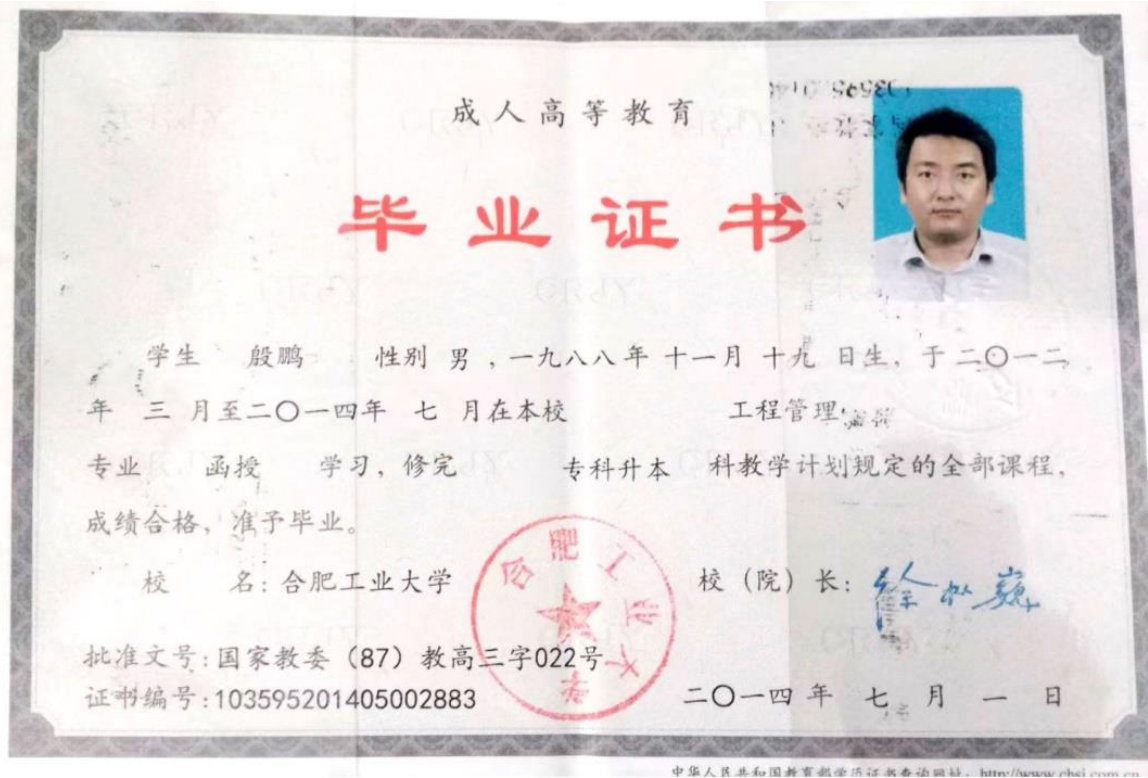 成人高等教育
毕业证书
学生 殷鹏 性别 男 ，一九八八年 十一月 十九 日生，于二〇一二
年 三 月至二〇一四年 七 月在本校 工程管理
专业 函授 学习，修完 专科升本 科教学计划规定的全部课程，
成绩合格，准予毕业。
合肥工业大学
校 名：合肥工业大学 校（院）长：
批准文号：国家教委（87）教高三字022号
证书编号：103595201405002883 二〇一四年 七 月 一 日
中华人民共和国教育部学历证书查询网址：http://www.chsi.com.cn